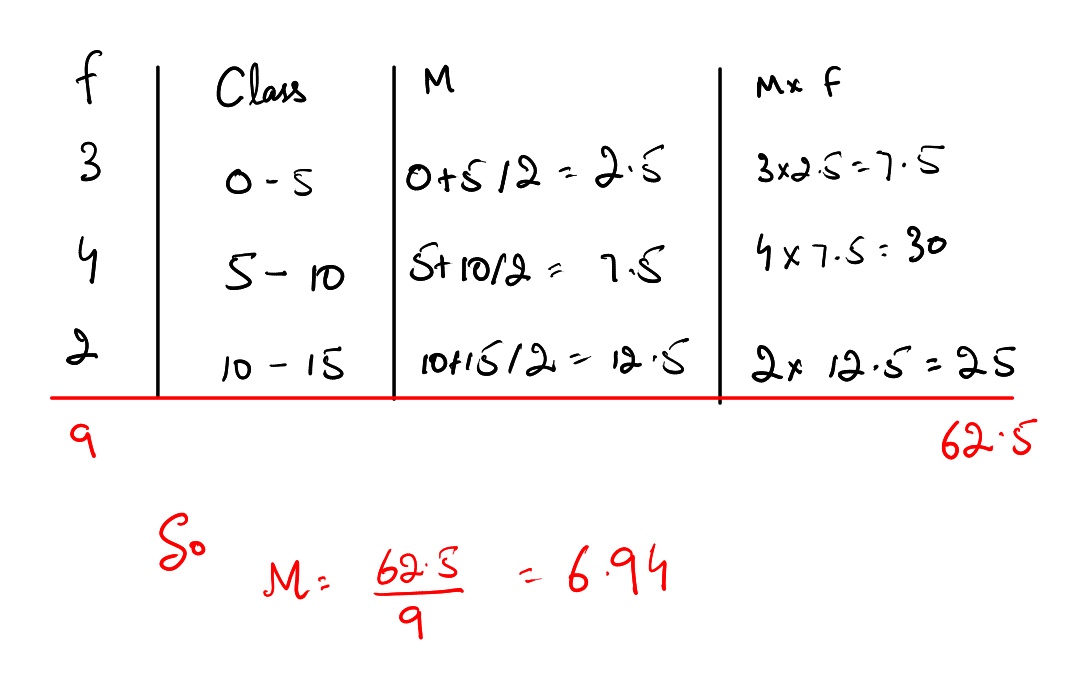 f Class M Mx f
3 0 - 5 0+5/2 = 2.5 3x2.5=7.5
4 5 - 10 5+10/2 = 7.5 4 x 7.5 = 30
2 10 - 15 10+15/2 = 12.5 2x 12.5 = 25
9 62.5
So
M = 62.5 / 9 = 6.94